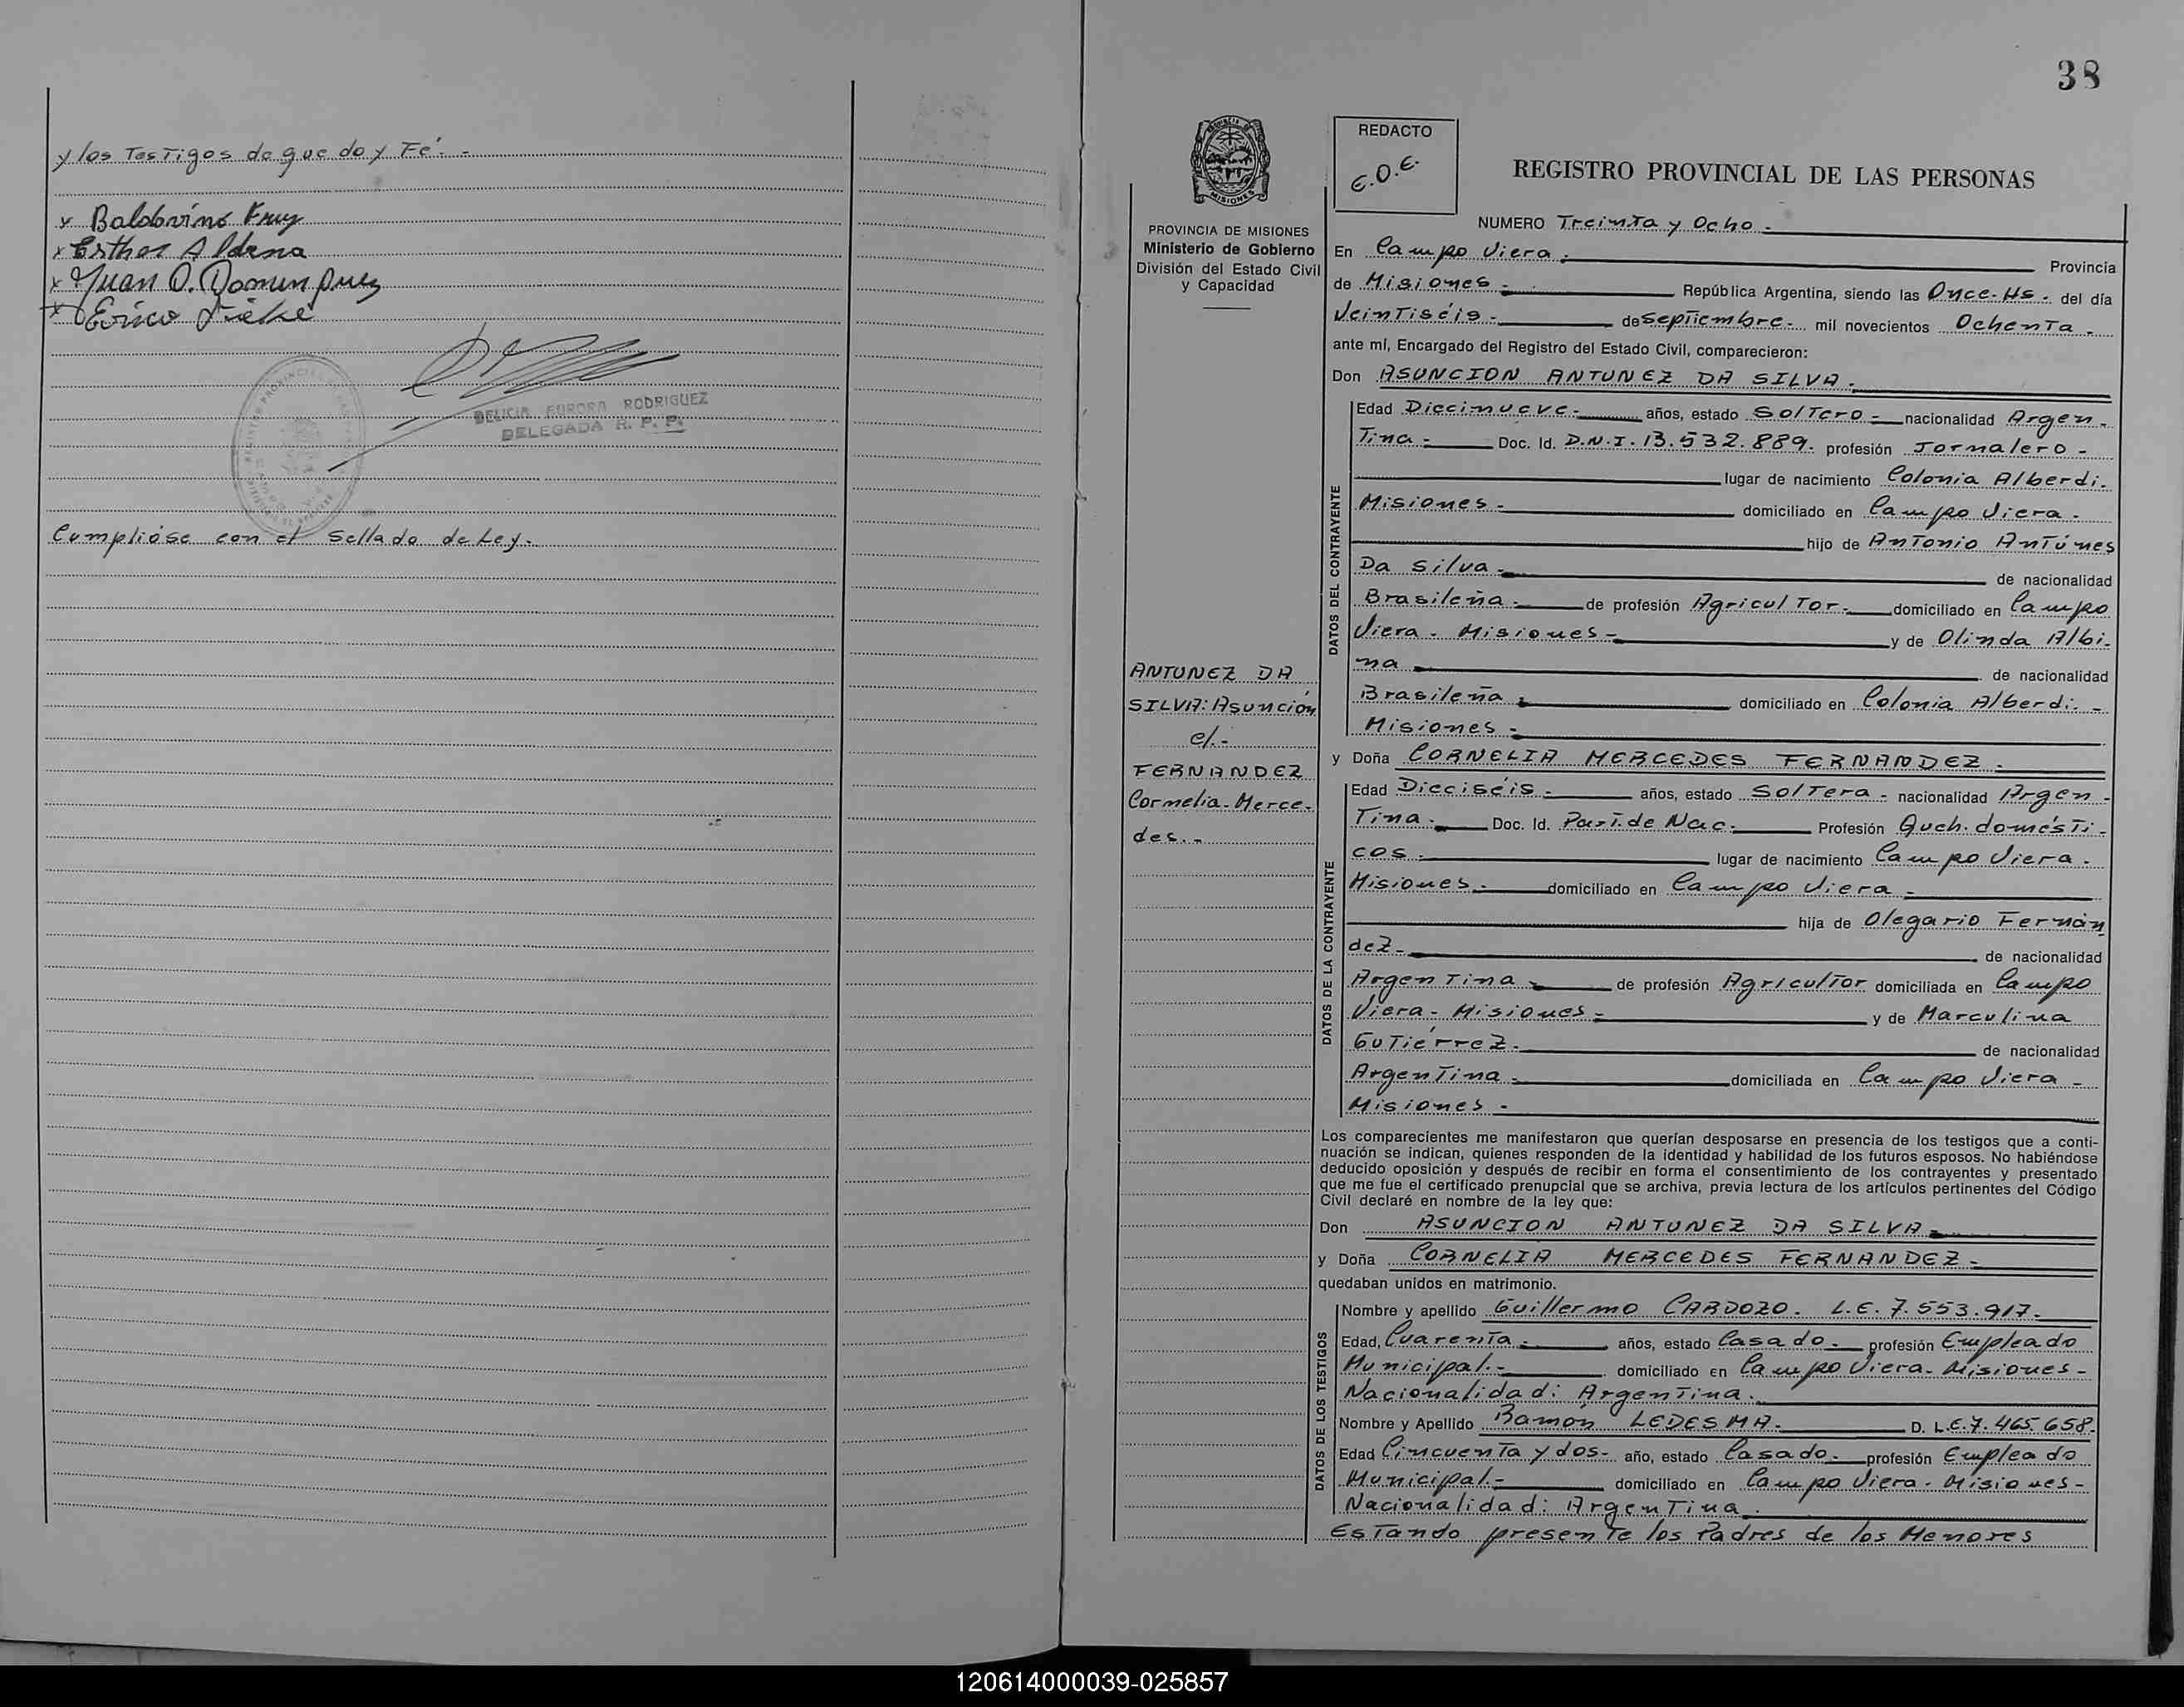 y los Testigos de que doy Fé.-
x Baldovino Kruy
x Esther Aldana
x Juan O. Dominguez
x Erico
DELICIA AURORA RODRIGUEZ
DELEGADA R. P. P.
Cumplióse con el Sellado de Ley.-
38
REDACTO
E.O.E.
REGISTRO PROVINCIAL DE LAS PERSONAS
PROVINCIA DE MISIONES
Ministerio de Gobierno
División del Estado Civil
y Capacidad
NUMERO Treinta y Ocho.-
En Campo Viera.- Provincia
de Misiones.- República Argentina, siendo las Once-Hs.- del día
Veintiséis.- de Septiembre.- mil novecientos Ochenta.-
ante mí, Encargado del Registro del Estado Civil, comparecieron:
Don ASUNCION ANTUNEZ DA SILVA.-
DATOS DEL CONTRAYENTE
Edad Diecinueve.- años, estado Soltero.- nacionalidad Argen-
tina.- Doc. Id. D.N.I. 13.532.889. profesión Jornalero-
lugar de nacimiento Colonia Alberdi.
Misiones.- domiciliado en Campo Viera.-
hijo de Antonio Antúnes
Da Silva.- de nacionalidad
Brasileña.- de profesión Agricultor.- domiciliado en Campo
Viera - Misiones- y de Olinda Albi-
na de nacionalidad
Brasileña.- domiciliado en Colonia Alberdi.-
Misiones.-
ANTUNEZ DA
SILVA: Asunción
c/.-
FERNANDEZ
Cornelia-Merce-
des.-
y Doña CORNELIA MERCEDES FERNANDEZ.-
DATOS DE LA CONTRAYENTE
Edad Dieciséis.- años, estado Soltera- nacionalidad Argen-
tina.- Doc. Id. Part. de Nac.- Profesión Queh. domésti-
cos.- lugar de nacimiento Campo Viera.
Misiones.- domiciliado en Campo Viera.-
hija de Olegario Fernán
dez- de nacionalidad
Argentina.- de profesión Agricultor domiciliada en Campo
Viera- Misiones.- y de Marculina
Gutiérrez.- de nacionalidad
Argentina.- domiciliada en Campo Viera-
Misiones-
Los comparecientes me manifestaron que querían desposarse en presencia de los testigos que a conti-
nuación se indican, quienes responden de la identidad y habilidad de los futuros esposos. No habiéndose
deducido oposición y después de recibir en forma el consentimiento de los contrayentes y presentado
que me fue el certificado prenupcial que se archiva, previa lectura de los artículos pertinentes del Código
Civil declaré en nombre de la ley que:
Don ASUNCION ANTUNEZ DA SILVA-
y Doña CORNELIA MERCEDES FERNANDEZ-
quedaban unidos en matrimonio.
DATOS DE LOS TESTIGOS
Nombre y apellido Guillermo CARDOZO. L.E. 7.553.917.
Edad, Cuarenta.- años, estado Casado.- profesión Empleado
Municipal.- domiciliado en Campo Viera- Misiones-
Nacionalidad: Argentina.
Nombre y Apellido Ramón LEDESMA.- D. L.E. 7.465.658.
Edad Cincuenta y dos- año, estado Casado.- profesión Empleado
Municipal.- domiciliado en Campo Viera- Misiones-
Nacionalidad: Argentina.
Estando presente los Padres de los Menores
120614000039-025857